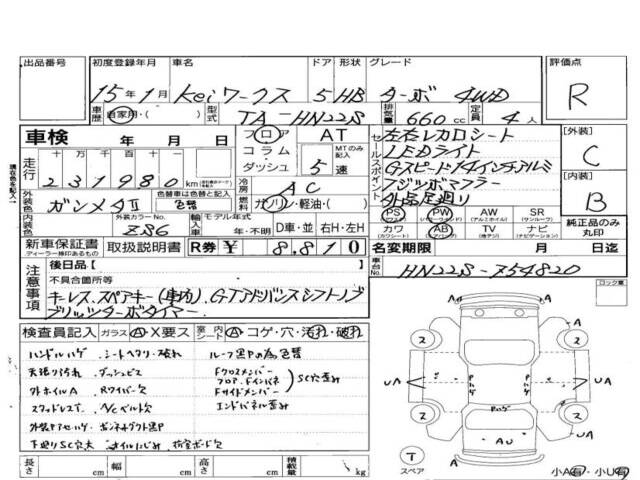 出品番号 初度登録年月 車名 ドア 形状 グレード 評価点
15年1月 Keiワークス 5 HB ターボ 4WD R
車歴 自家用・( ) 型式 TA-HN22S 排気量 660cc 定員 4人
車検 年 月 日 フロア AT 左右レカロシート 【外装】
走行 十万 万 千 百 十 コラム MTのみ記入 セールスポイント LEDライト C
231980km ダッシュ 5速 Gスピード14インチアルミ
外装色 色替車は色替と記入 冷房 AC フジツボマフラー 【内装】
ガンメタⅡ 色替 燃料 ガソリン・軽油・( ) 外品足廻り B
内装色 外装カラーNo. 輸入車 モデル年式 PS PW AW SR
(パワステ) (パワーウィンドウ) (アルミホイル) (サンルーフ)
Z86 年・不明 D車・並 右H・左H カワ AB TV ナビ 純正品のみ丸印
(カワシート) (エアバッグ) (テレビ) (ナビゲーション)
新車保証書 取扱説明書 R券 ¥ 8,810 名変期限 月 日迄
ディーラー捺印あるもの
車台No. HN22S-754820
注意事項 後日品【 】
不具合箇所等
キーレス、スペアキー(車内)、G.Tアドバンスシフトノブ
ブリッツターボタイマー
ロック車
検査員記入 ガラス A・X要ス 室内シート A・コゲ・穴・汚れ・破れ
ハンドルハゲ ・シートヘタリ・破れ ルーフ黒Pの為色替
天張り汚れ ・ダッシュビス Fクロスメンバー
外ホイルA ・Rワイパー欠 フロア、Fインパネ SC歪み
スタッドレスT ・A/Cベルト欠 Fサイドメンバー
外装PアセハゲP・ボンネットダクト黒P エンドパネル歪み
下廻りSC穴大 ・オイルにじみ・荷室ボード欠
UA UA
Pハゲ
AU
T
スペア
長さ cm 幅 cm 高さ cm 積載量 kg 小A有・小U有